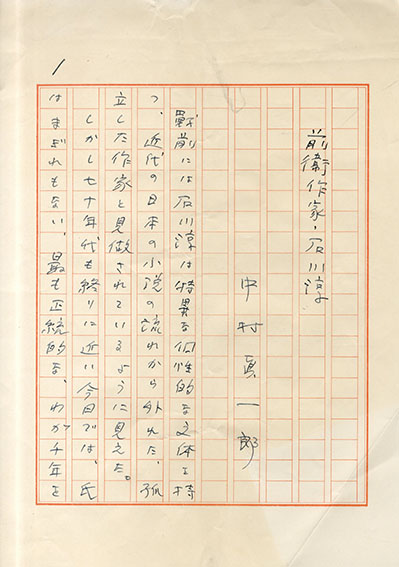 1
前衛作家・石川淳
中村真一郎
戦前には石川淳は特異な個性的な文体を持
つ、近代の日本の小説の流れから外れた、孤
立した作家と見做されているように見えた。
しかし七十年代も終りに近い今日では、氏
はまぎれもない、最も正統的な、わが千年を